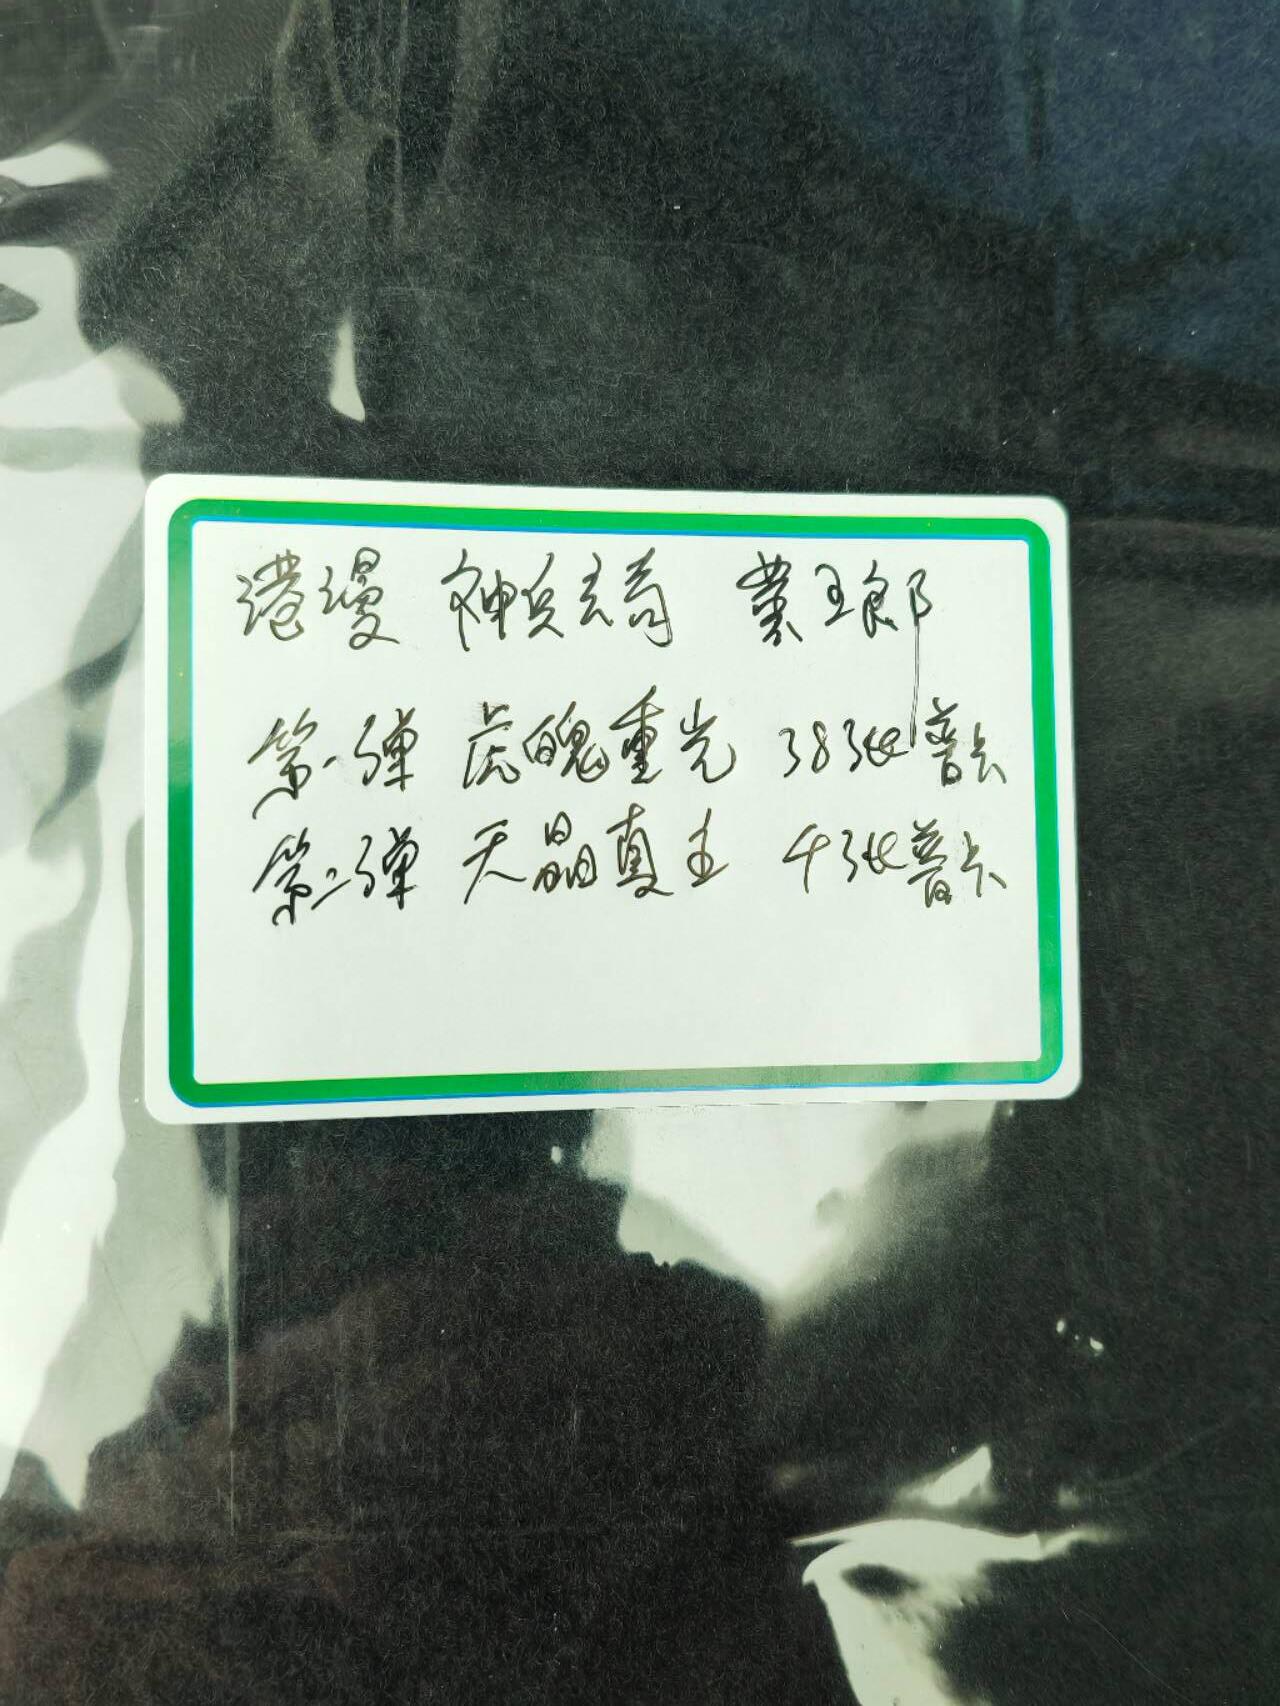 港漫 神兵玄奇 黄玉郎
第一弹 虎魄重光 38张普卡
第二弹 天晶真主 4张普卡